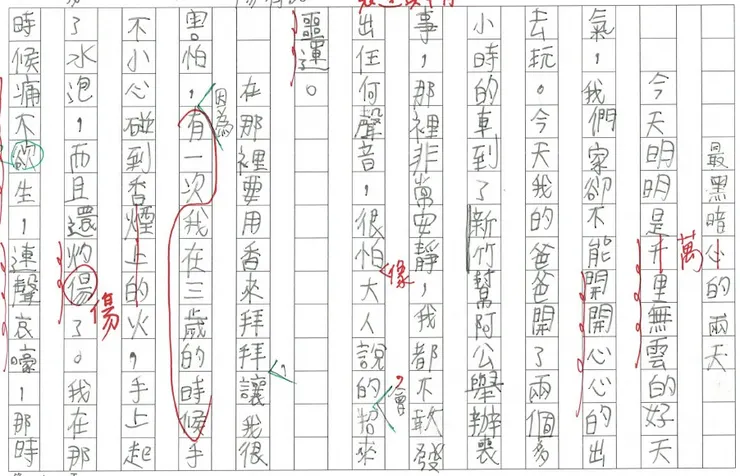 最黑暗的兩天
今天明明是千里無雲的好天
萬
氣，我們家卻不能開開心心的出
去玩。今天我的爸爸開了兩個多
小時的車到了新竹幫阿公舉辦喪
事，那裡非常安靜，我都不敢發
出任何聲音，很怕大人說的招來
像
，會
噩運。
在那裡要用香來拜拜讓我很
，
害怕，有一次我在三歲的時候手
因為
不小心碰到香煙上的火，手上起
了水泡，而且還灼傷了。我在那
傷
時候痛不欲生，連聲哀嚎，那時